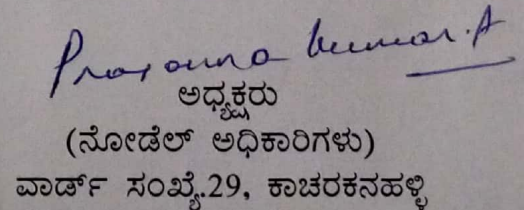 Prasanna Kumar.A
ಅಧ್ಯಕ್ಷರು
(ನೋಡೆಲ್ ಅಧಿಕಾರಿಗಳು)
ವಾರ್ಡ್ ಸಂಖ್ಯೆ.29, ಕಾಚರಕನಹಳ್ಳಿ